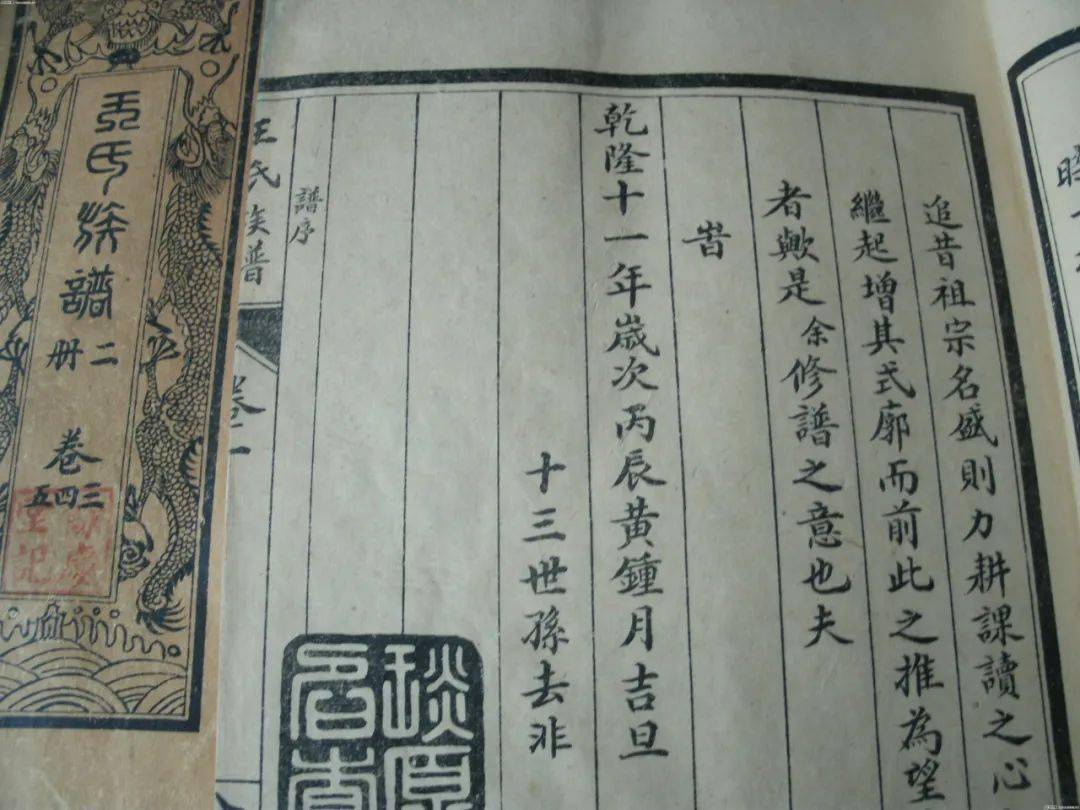 追昔祖宗名盛則力耕課讀之心
繼起增其式廓而前此之推為望
者歟是余修譜之意也夫
旹
乾隆十一年歲次丙辰黃鍾月吉旦
十三世孫去非
譜序
王氏族譜
卷
王氏族譜
二册
卷
三四五